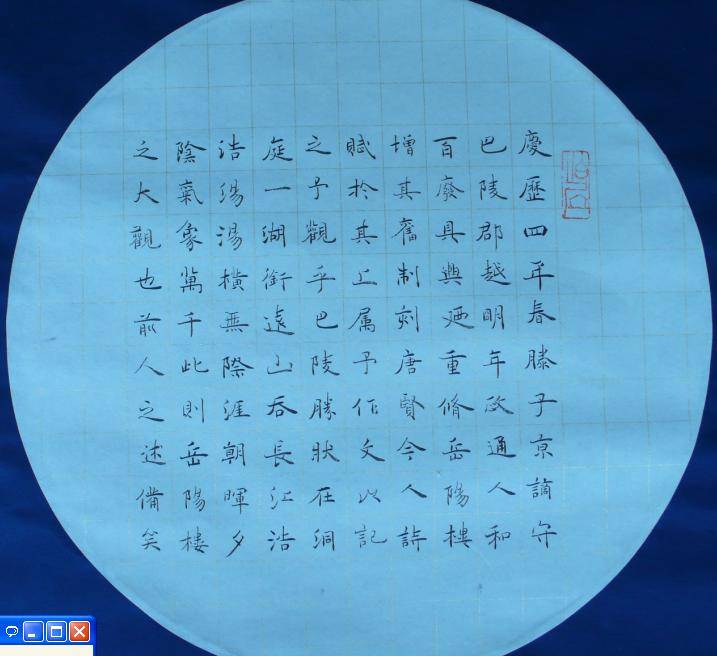 慶歷四年春滕子京謫守
巴陵郡越明年政通人和
百廢具興廼重脩岳陽樓
增其舊制刻唐賢今人詩
賦於其上属予作文以記
之予觀乎巴陵勝狀在洞
庭一湖銜遠山吞長江浩
浩湯湯橫無際涯朝暉夕
陰氣象萬千此則岳陽樓
之大觀也前人之述備矣